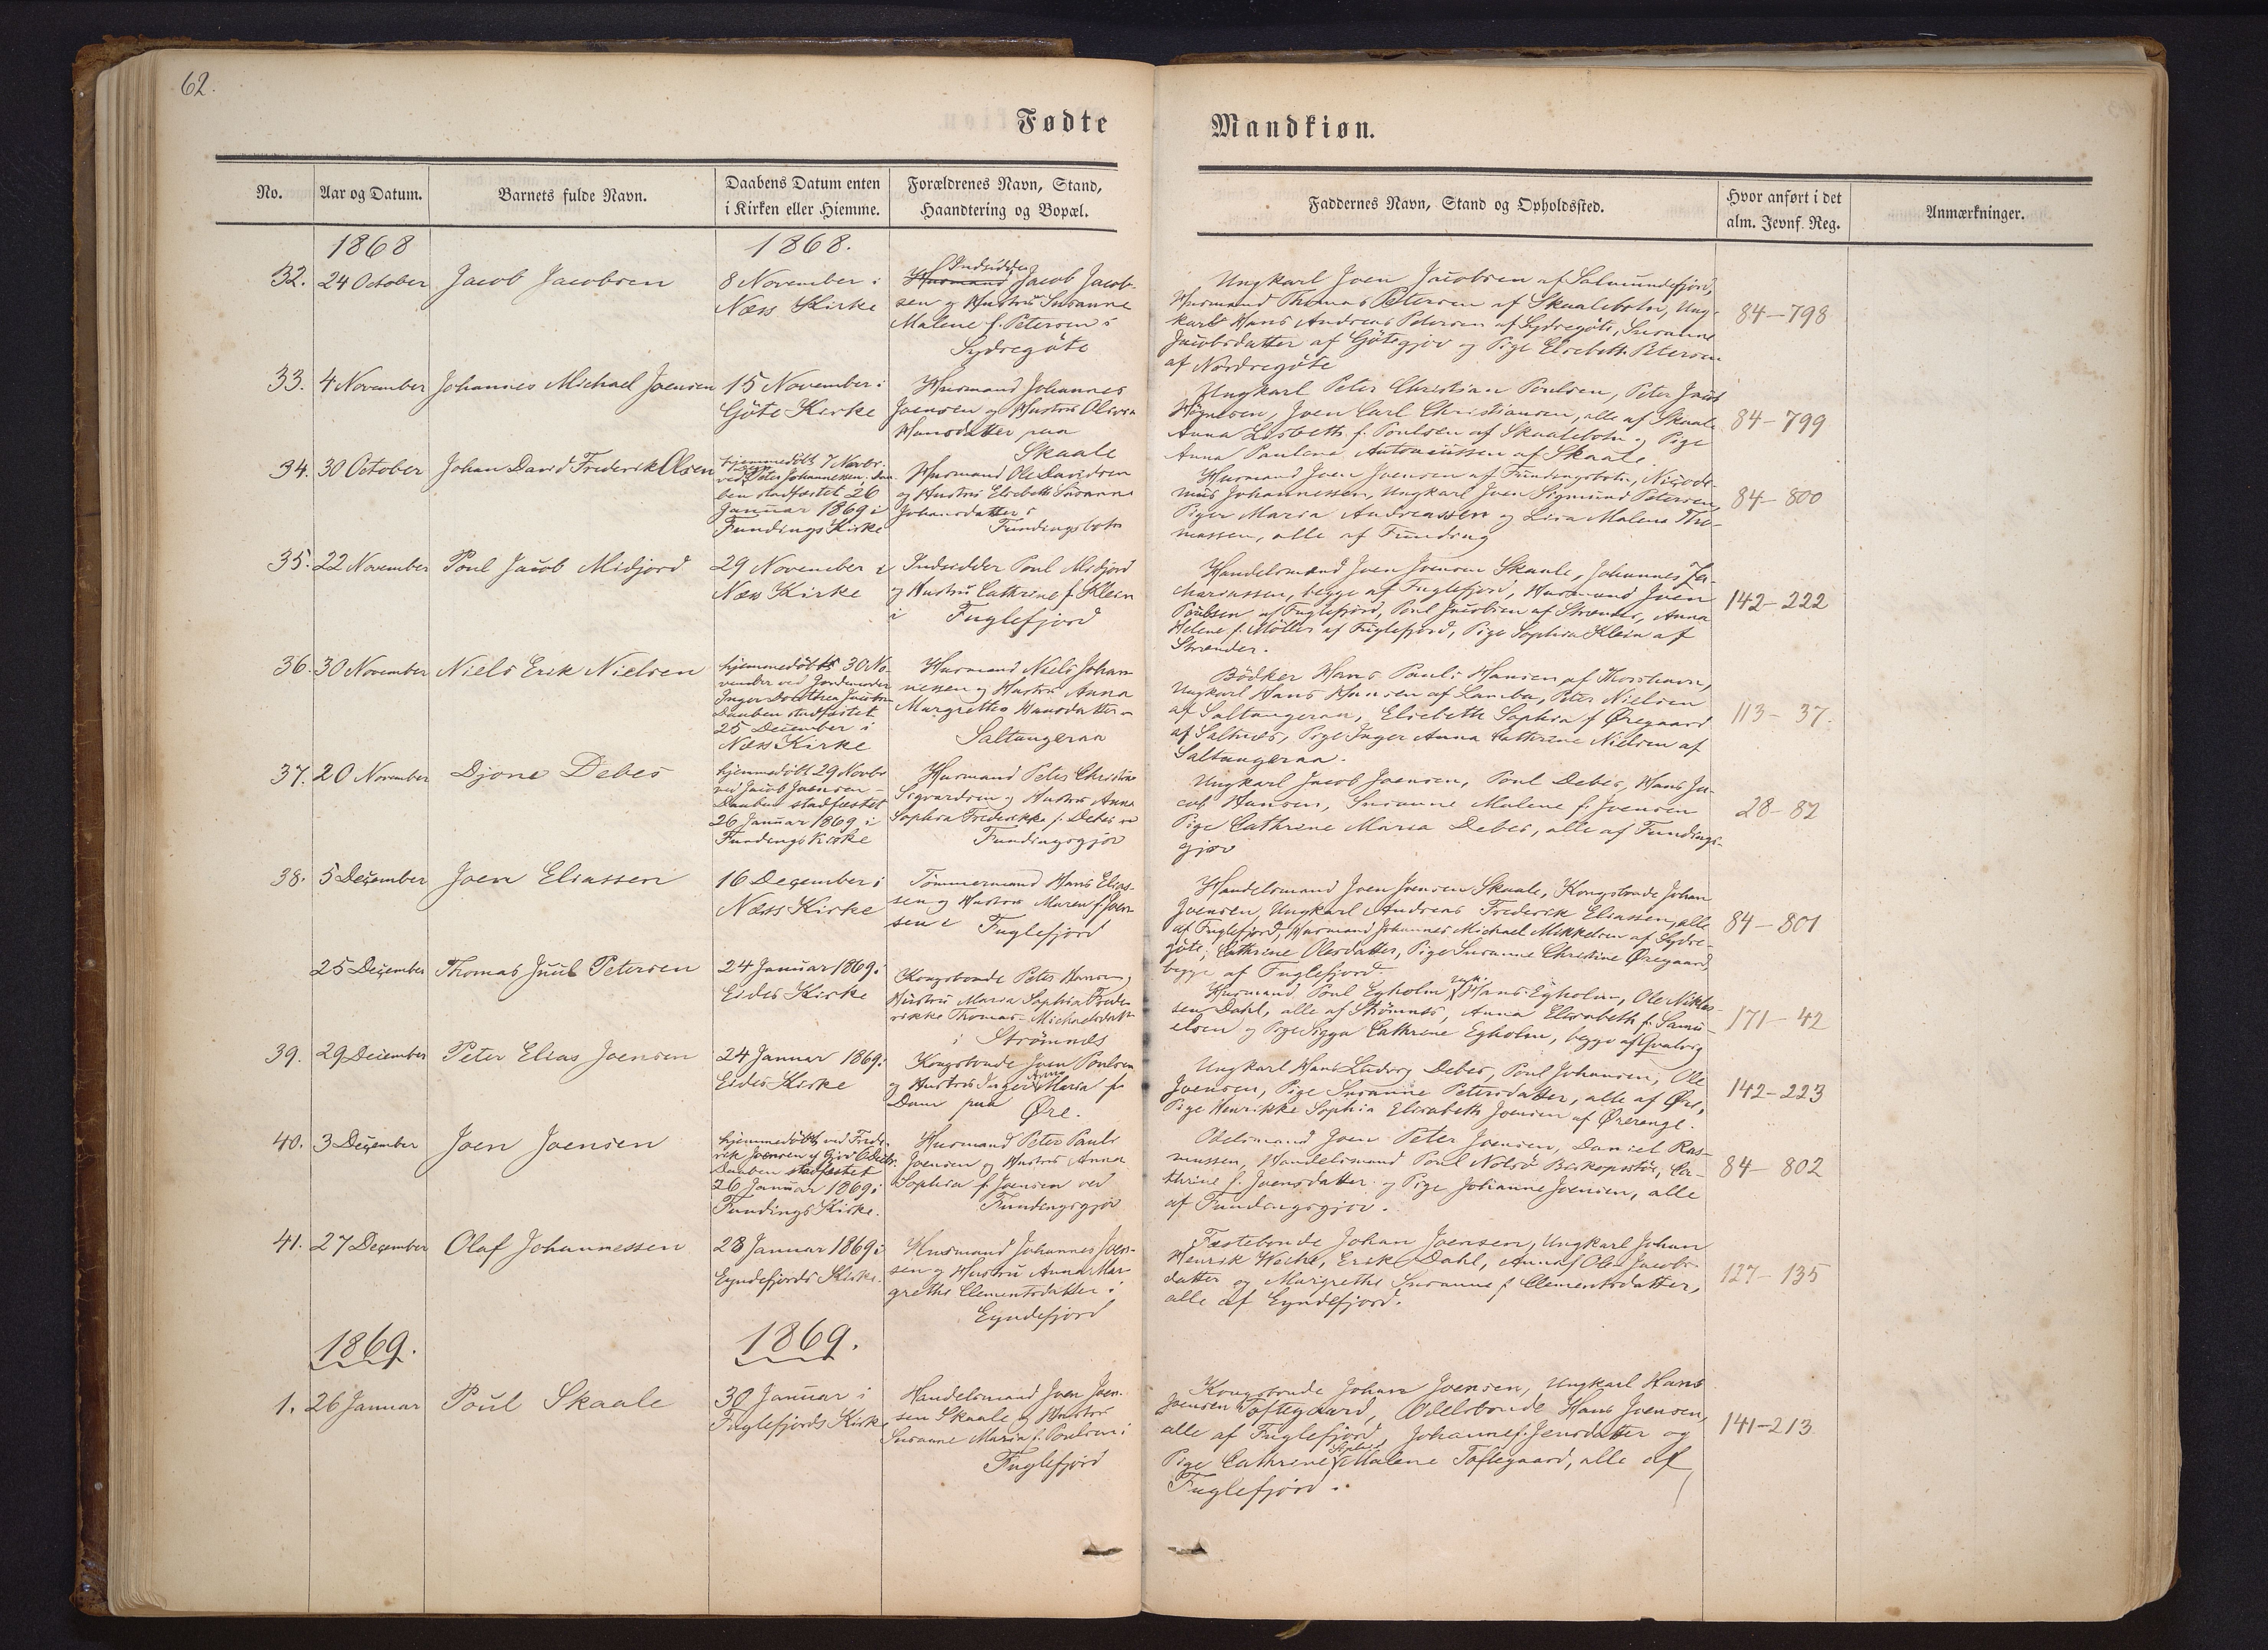 62.
Fødte
Mandkiøn.
No.
Aar og Datum.
Barnets fulde Navn.
Daabens Datum enten
i Kirken eller Hiemme.
Forældrenes Navn, Stand,
Haandtering og Bopæl.
Faddernes Navn, Stand og Opholdssted.
Hvor anført i det
alm. Jevnf. Reg.
Anmærkninger.
1868
1868.
32.
24 October
Jacob Jacobsen
8 November i
Næss Kirke
Indsidder
Husmand Jacob Jacob-
sen og Hustru Susanne
Malene f. Petersen i
Sydregöte
Ungkarl Joen Jacobsen af Salmundefjord,
Husmand Thomas Petersen af Skaalebotn, Ung-
karl Hans Andreas Petersen af Sydregöte, Susanne
Jacobsdatter af Götegjov og Pige Elsebeth Petersen
af Nordregöte
84-798
33.
4 November
Johannes Michael Joensen
15 November i
Göte Kirke
Husmand Johannes
Joensen og Hustru Olivia
Hansdatter paa
Skaale
Ungkarl Peter Christian Poulsen, Peter Jacob
Högnesen, Joen Carl Christiansen, alle af Skaale
Anna Lisbeth f. Poulsen af Skaalebotn og Pige
Anna Paulena Antoniussen af Skaale
84-799
34.
30 October
Johan David Frederik Olsen
hjemmedöbt 7 Novbr.
ved Peter Johannessen. Daa-
ben stadfæstet 26
Januar 1869 i
Fundings Kirke
Husmand Ole Davidsen
og Hustru Elsebeth Susanne
Johansdatter i
Fundingsbotn
Husmand Joen Joensen af Fundingsbotn, Nicode-
mus Johannessen, Ungkarl Joen Sigmund Petersen,
Piger Maria Andreassen og Lisa Malena Tho-
massen, alle af Funding
84-800
35.
22 November
Poul Jacob Midjord
29 November i
Næss Kirke
Indsidder Poul Midjord
og Hustru Cathrine f. Klein
i Fuglefjord
Handelsmand Joen Joensen Skaale, Johannes Za-
chariassen, begge af Fuglefjord, Husmand Joen
Poulsen af Fuglefjord, Poul Jacobsen af Strænder, Anna
Helene f. Möller af Fuglefjord, Pige Sophia Klein af
Strænder.
142-222
36.
30 November
Niels Erik Nielsen
hjemmedöbt 30 No-
vember ved Jordemoder
Inger Dorothea Jacobsen
Daaben stadfæstet
25 December i
Næss Kirke
Husmand Niels Johan-
nessen og Hustru Anna
Margrethe Hansdatter
Saltangeraa
Bödker Hans Pauli Hansen af Thorshavn,
Ungkarl Hans Hansen af Lamba, Peter Nielsen
af Saltangeraa, Elsebeth Sophia f Øregaard
af Saltnæs, Pige Inger Anna Cathrine Nielsen af
Saltangeraa.
113-37.
37.
20 November
Djone Debes
hjemmedöbt 29 Novbr
ved Jacob Joensen -
Daaben stadfæstet
26 Januar 1869 i
Fundings Kirke
Husmand Peter Christian
Sigvardsen og Hustru Anna
Sophia Frederikke f. Debes
Fundingsgjov
Ungkarl Jacob Joensen, Poul Debes, Hans Ja-
cob Hansen, Susanne Malene f. Joensen
Pige Cathrine Maria Debes, alle af Fundings-
gjov
28-82
38.
5 December
Joen Eliassen
16 December i
Næss Kirke
Tömmermand Hans Elias-
sen og Hustru Maren f. Joen-
sen i Fuglefjord
Handelsmand Joen Joensen Skaale, Kongsbonde Johan
Joensen, Ungkarl Andreas Frederik Eliassen, alle
af Fuglefjord, Husmand Johannes Michael Mikkelsen af Sydre-
göte, Cathrine Olesdatter, Pige Susanne Christine Øregaard,
begge af Fuglefjord.
84-801
25 December
Thomas Juul Petersen
24 Januar 1869 i
Eides Kirke
Kongsbonde Peter Hansen og
Hustru Maria Sophia Frede-
rikke Thomas-Michaelsdatter
i Strömnæs
Husmand Poul Egholm, Hans Egholm, Ole Niklas-
sen Dahl, alle af Strömnæs, Anna Elisabeth f. Samu-
elsen og Pige Sigga Cathrine Egholm, begge af Hvalvig
171-42
39.
29 December
Peter Elias Joensen
24 Januar 1869 i
Eides Kirke
Kongsbonde Joen Poulsen
og Hustru Inger Anna Maria f.
Dam paa Øre.
Ungkarl Hans Ludvig Debes, Poul Johansen, Ole
Joensen, Pige Susanne Petersdatter, alle af Øre,
Pige Henrikke Sophia Elisabeth Joensen af Ørerenge.
142-223
40.
3 December
Joen Joensen
hjemmedöbt ved Frede-
rik Joensen af Gjov 6 Decbr.
Daaben stadfæstet
26 Januar 1869 i
Fundings Kirke.
Husmand Peter Pauli
Joensen og Hustru Anna
Sophia f. Joensen ved
Fundingsgjov
Odelsmand Joen Peter Joensen, Daniel Ras-
mussen, Handelsmand Poul Nolsö Biskopsstö, Ca-
thrine f. Joensdatter og Pige Johanne Joensen, alle
af Fundingsgjov.
84-802
41.
27 December
Olaf Johannessen
28 Januar 1869 i
Eyndefjords Kirke.
Husmand Johannes Joen-
sen og Hustru Anna Mar-
grethe Clementsdatter i
Eyndefjord
Fæstebonde Johan Joensen, Ungkarl Johan
Henrik Weihe, Erik Dahl, Anna f. Ole-Jacobs-
datter og Margrethe Susanne f Clementsdatter,
alle af Eyndefjord.
127-135
1869.
1869.
1.
26 Januar
Poul Skaale
30 Januar i
Fuglefjords Kirke
Handelsmand Joen Joen-
sen Skaale og Hustru
Susanne Maria f. Poulsen i
Fuglefjord
Kongsbonde Johan Joensen, Ungkarl Hans
Joensen Toftegaard, Odelsbonde Hans Joensen,
alle af Fuglefjord, Johanne f. Jensdatter og
Pige Cathrine Sophie Malene Toftegaard, alle af
Fuglefjord.
141-213